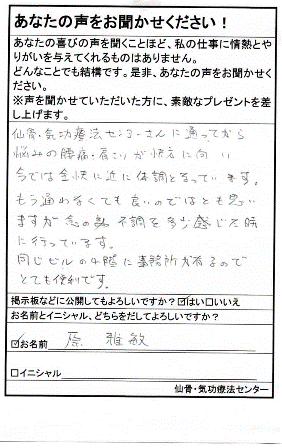 あなたの声をお聞かせください！
あなたの喜びの声を聞くことほど、私の仕事に情熱とや
りがいを与えてくれるものはありません。
どんなことでも結構です。是非、あなたの声をお聞かせく
ださい。
※声を聞かせていただいた方に、素敵なプレゼントを差
し上げます。
仙骨・気功療法センターさんに通ってから
悩みの腰痛・肩こりが快方に向い
今では全快に近い体調となっています。
もう通わなくても良いのではとも思い
ますが念の為 不調を多少感じた時
に行っています。
同じビルの4階に事務所が有るので
とても便利です。
掲示板などに公開してもよろしいですか？☑はい□いいえ
お名前とイニシャル、どちらをだしてよろしいですか？
☑お名前 原 雅敏
□イニシャル
仙骨・気功療法センター